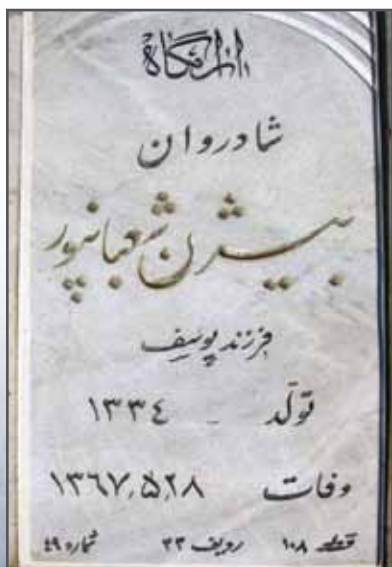 آرامگاه
شادروان
بیژن شعبانپور
فرزند یوسف
تولد - ۱۳۳٤
وفات ۱۳٦۷٫۵٫۲۸
قطعه ۱۰۸ ردیف ۲۳ شماره ٤۹